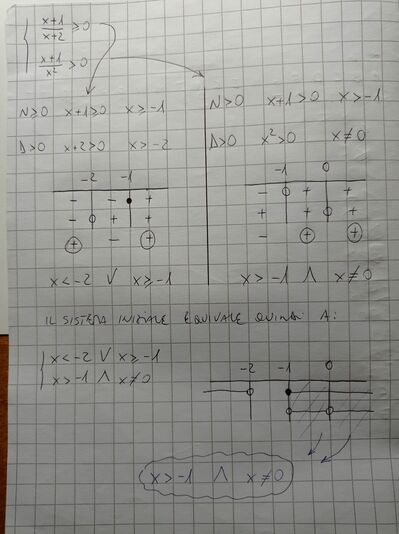 { (x+1)/(x+2) ≥ 0
(x+1)/x² > 0
N≥0 x+1≥0 x≥-1
D>0 x+2>0 x>-2
-2 -1
- - +
- + +
+ - +
x<-2 ∨ x≥-1
N>0 x+1>0 x>-1
D>0 x²>0 x≠0
-1 0
- + +
+ + +
- + +
x>-1 ∧ x≠0
IL SISTEMA INIZIALE EQUIVALE QUINDI A:
{ x<-2 ∨ x≥-1
x>-1 ∧ x≠0
-2 -1 0
x>-1 ∧ x≠0